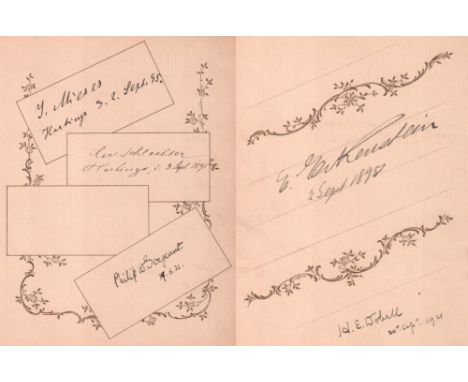 J. Mieses
Hastings d. 2. Sept. 95.
Carl Schlechter
Hastings, d. 2 Sept 1895
Philip W. Sergeant
E. 
2 Sept 1895
H. E. Dobell
20th Sept. 1921